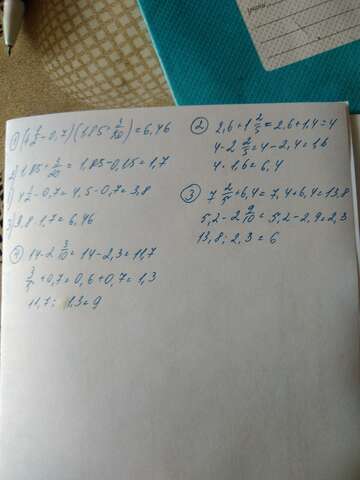 ① (4 1/2 - 0,7) (1,85 - 3/20) = 6,46
2) 1,85 - 3/20 = 1,85 - 0,15 = 1,7
1) 4 1/2 - 0,7 = 4,5 - 0,7 = 3,8
3) 3,8 · 1,7 = 6,46
② 2,6 + 1 2/5 = 2,6 + 1,4 = 4
4 - 2 2/5 = 4 - 2,4 = 1,6
4 · 1,6 = 6,4
③ 7 2/5 + 6,4 = 7,4 + 6,4 = 13,8
5,2 - 2 9/10 = 5,2 - 2,9 = 2,3
13,8 : 2,3 = 6
④ 14 - 2 3/10 = 14 - 2,3 = 11,7
3/5 + 0,7 = 0,6 + 0,7 = 1,3
11,7 : 1,3 = 9